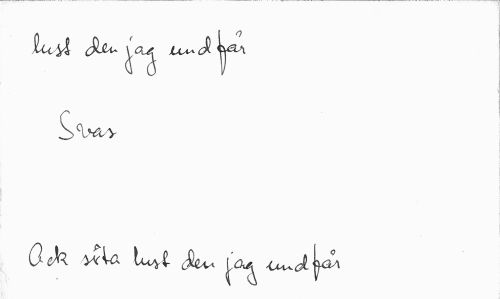 lust den jag undfår
Svar
Ack söta lust den jag undfår